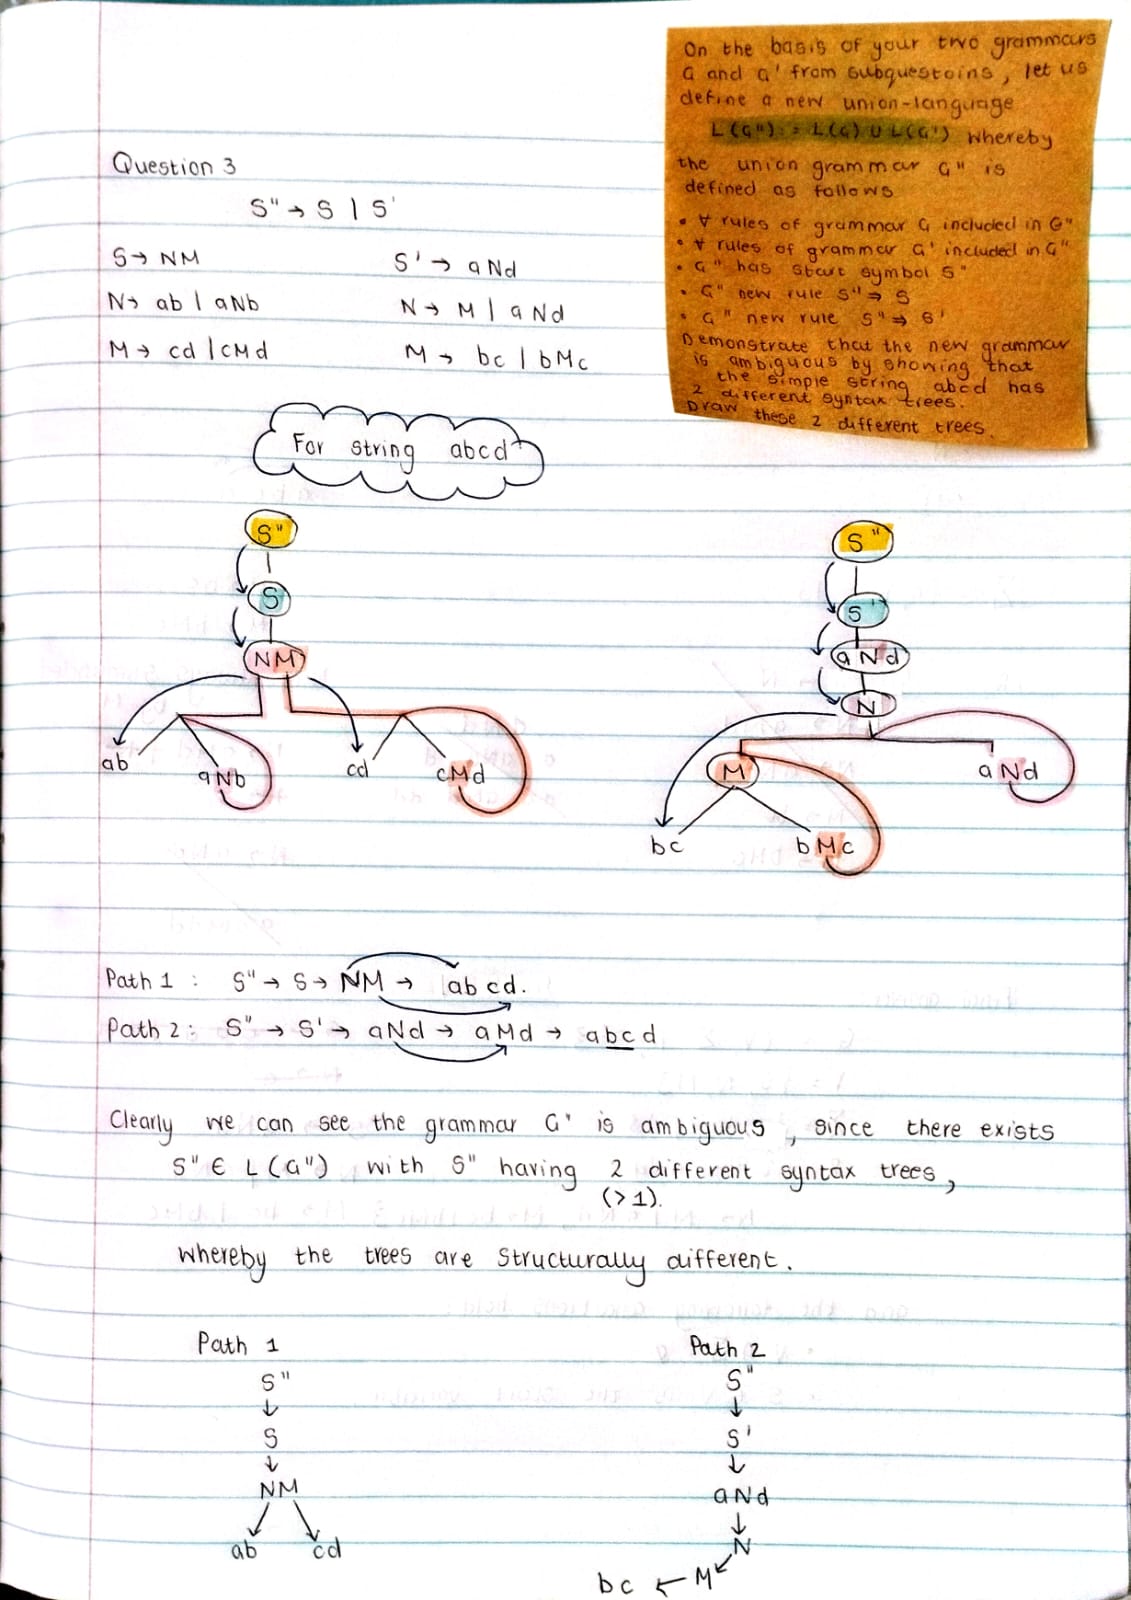 On the basis of your two grammars
G and G' from subquestoins, let us
define a new union-language
L(G") := L(G) U L(G') whereby
the union grammar G" is
defined as follows
• ∀ rules of grammar G included in G"
• ∀ rules of grammar G' included in G"
• G" has start symbol S"
• G" new rule S" ⇒ S
• G" new rule S" ⇒ S'
Demonstrate that the new grammar
is ambiguous by showing that
the simple string abcd has
2 different syntax trees.
Draw these 2 different trees.
Question 3
S" → S | S'
S → NM
S' → aNd
N → ab | aNb
N → M | aNd
M → cd | cMd
M → bc | bMc
For string abcd
S"
S
NM
ab
aNb
cd
cMd
S"
S'
aNd
N
M
aNd
bc
bMc
Path 1 : S" → S → NM → abcd.
Path 2 : S" → S' → aNd → aMd → abcd
Clearly we can see the grammar G' is ambiguous, since there exists
S" ∈ L(G") with S" having 2 different syntax trees,
(>1).
whereby the trees are structurally different.
Path 1
S"
↓
S
↓
NM
ab cd
Path 2
S"
↓
S'
↓
aNd
↓
N
bc ← M